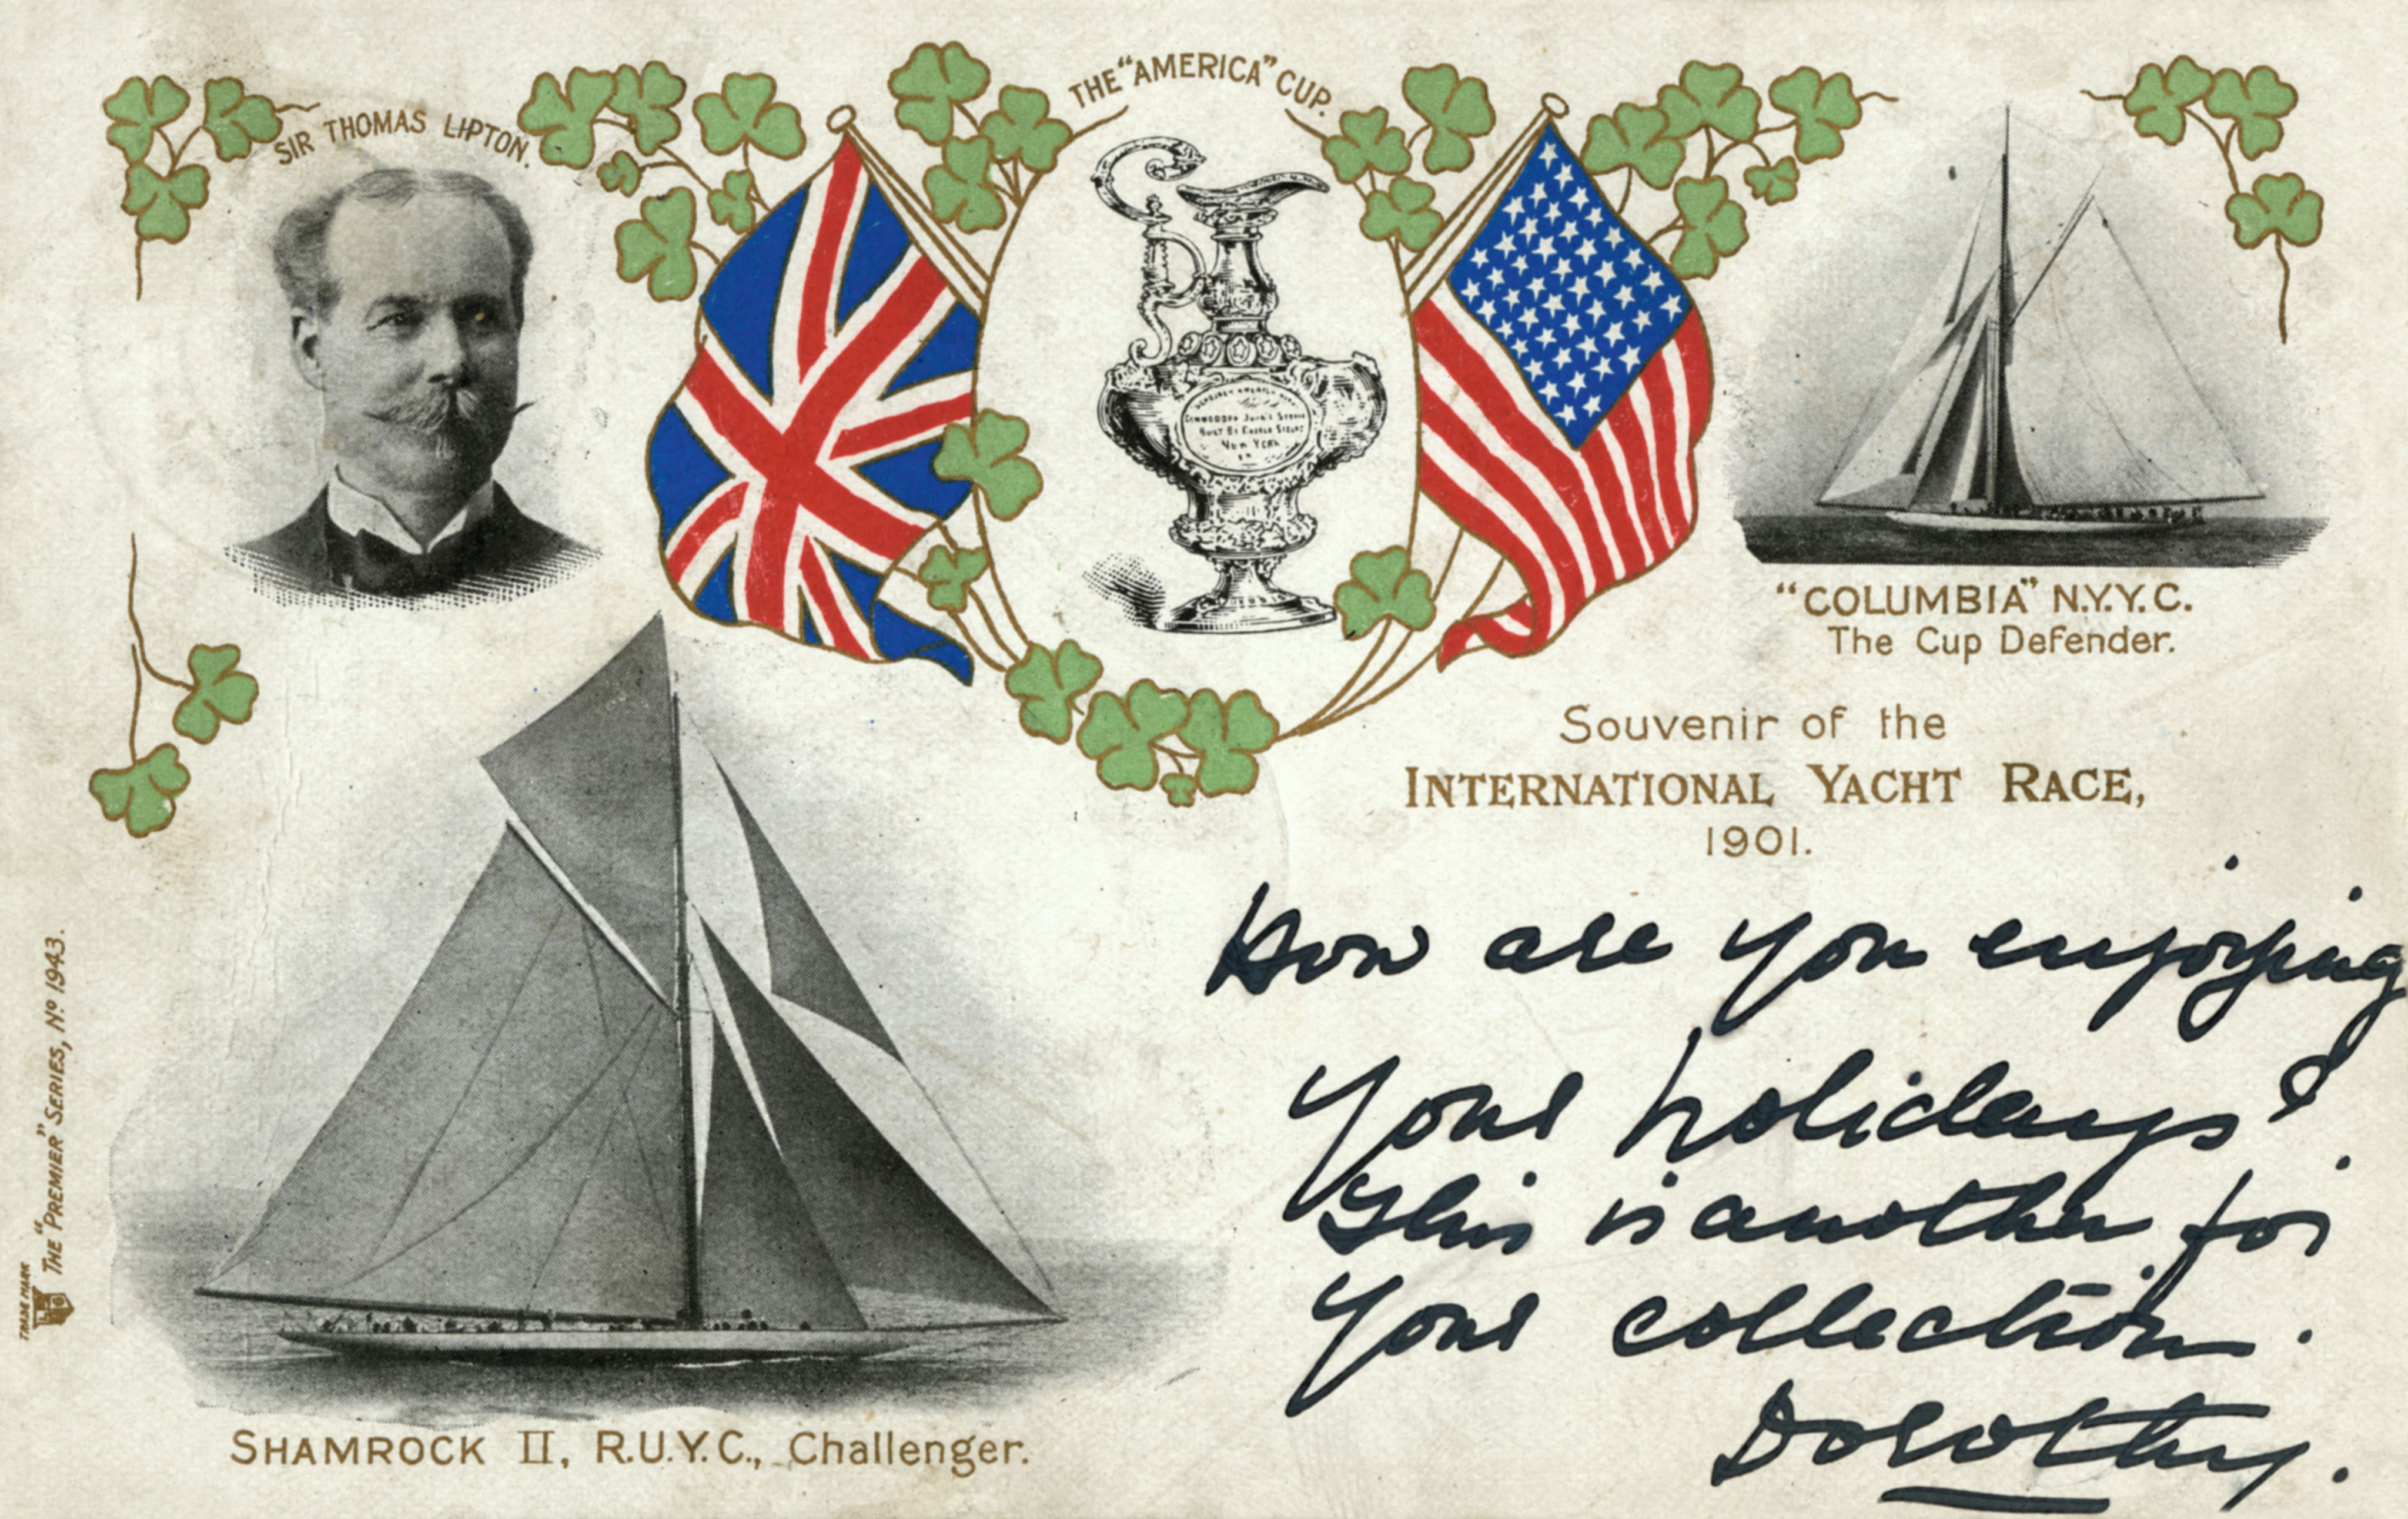 SIR THOMAS LIPTON.
THE "AMERICA" CUP.
COMMODORE JOHN C STEVENS
BUILT BY GEORGE STEERS
NEW YORK
"COLUMBIA" N.Y.Y.C.
The Cup Defender.
Souvenir of the
INTERNATIONAL YACHT RACE,
1901.
How are you enjoying
your holidays?
This is another for
your collection.
Dorothy.
SHAMROCK II, R.U.Y.C., Challenger.
THE "PREMIER" SERIES, Nº 1943.
TRADE MARK